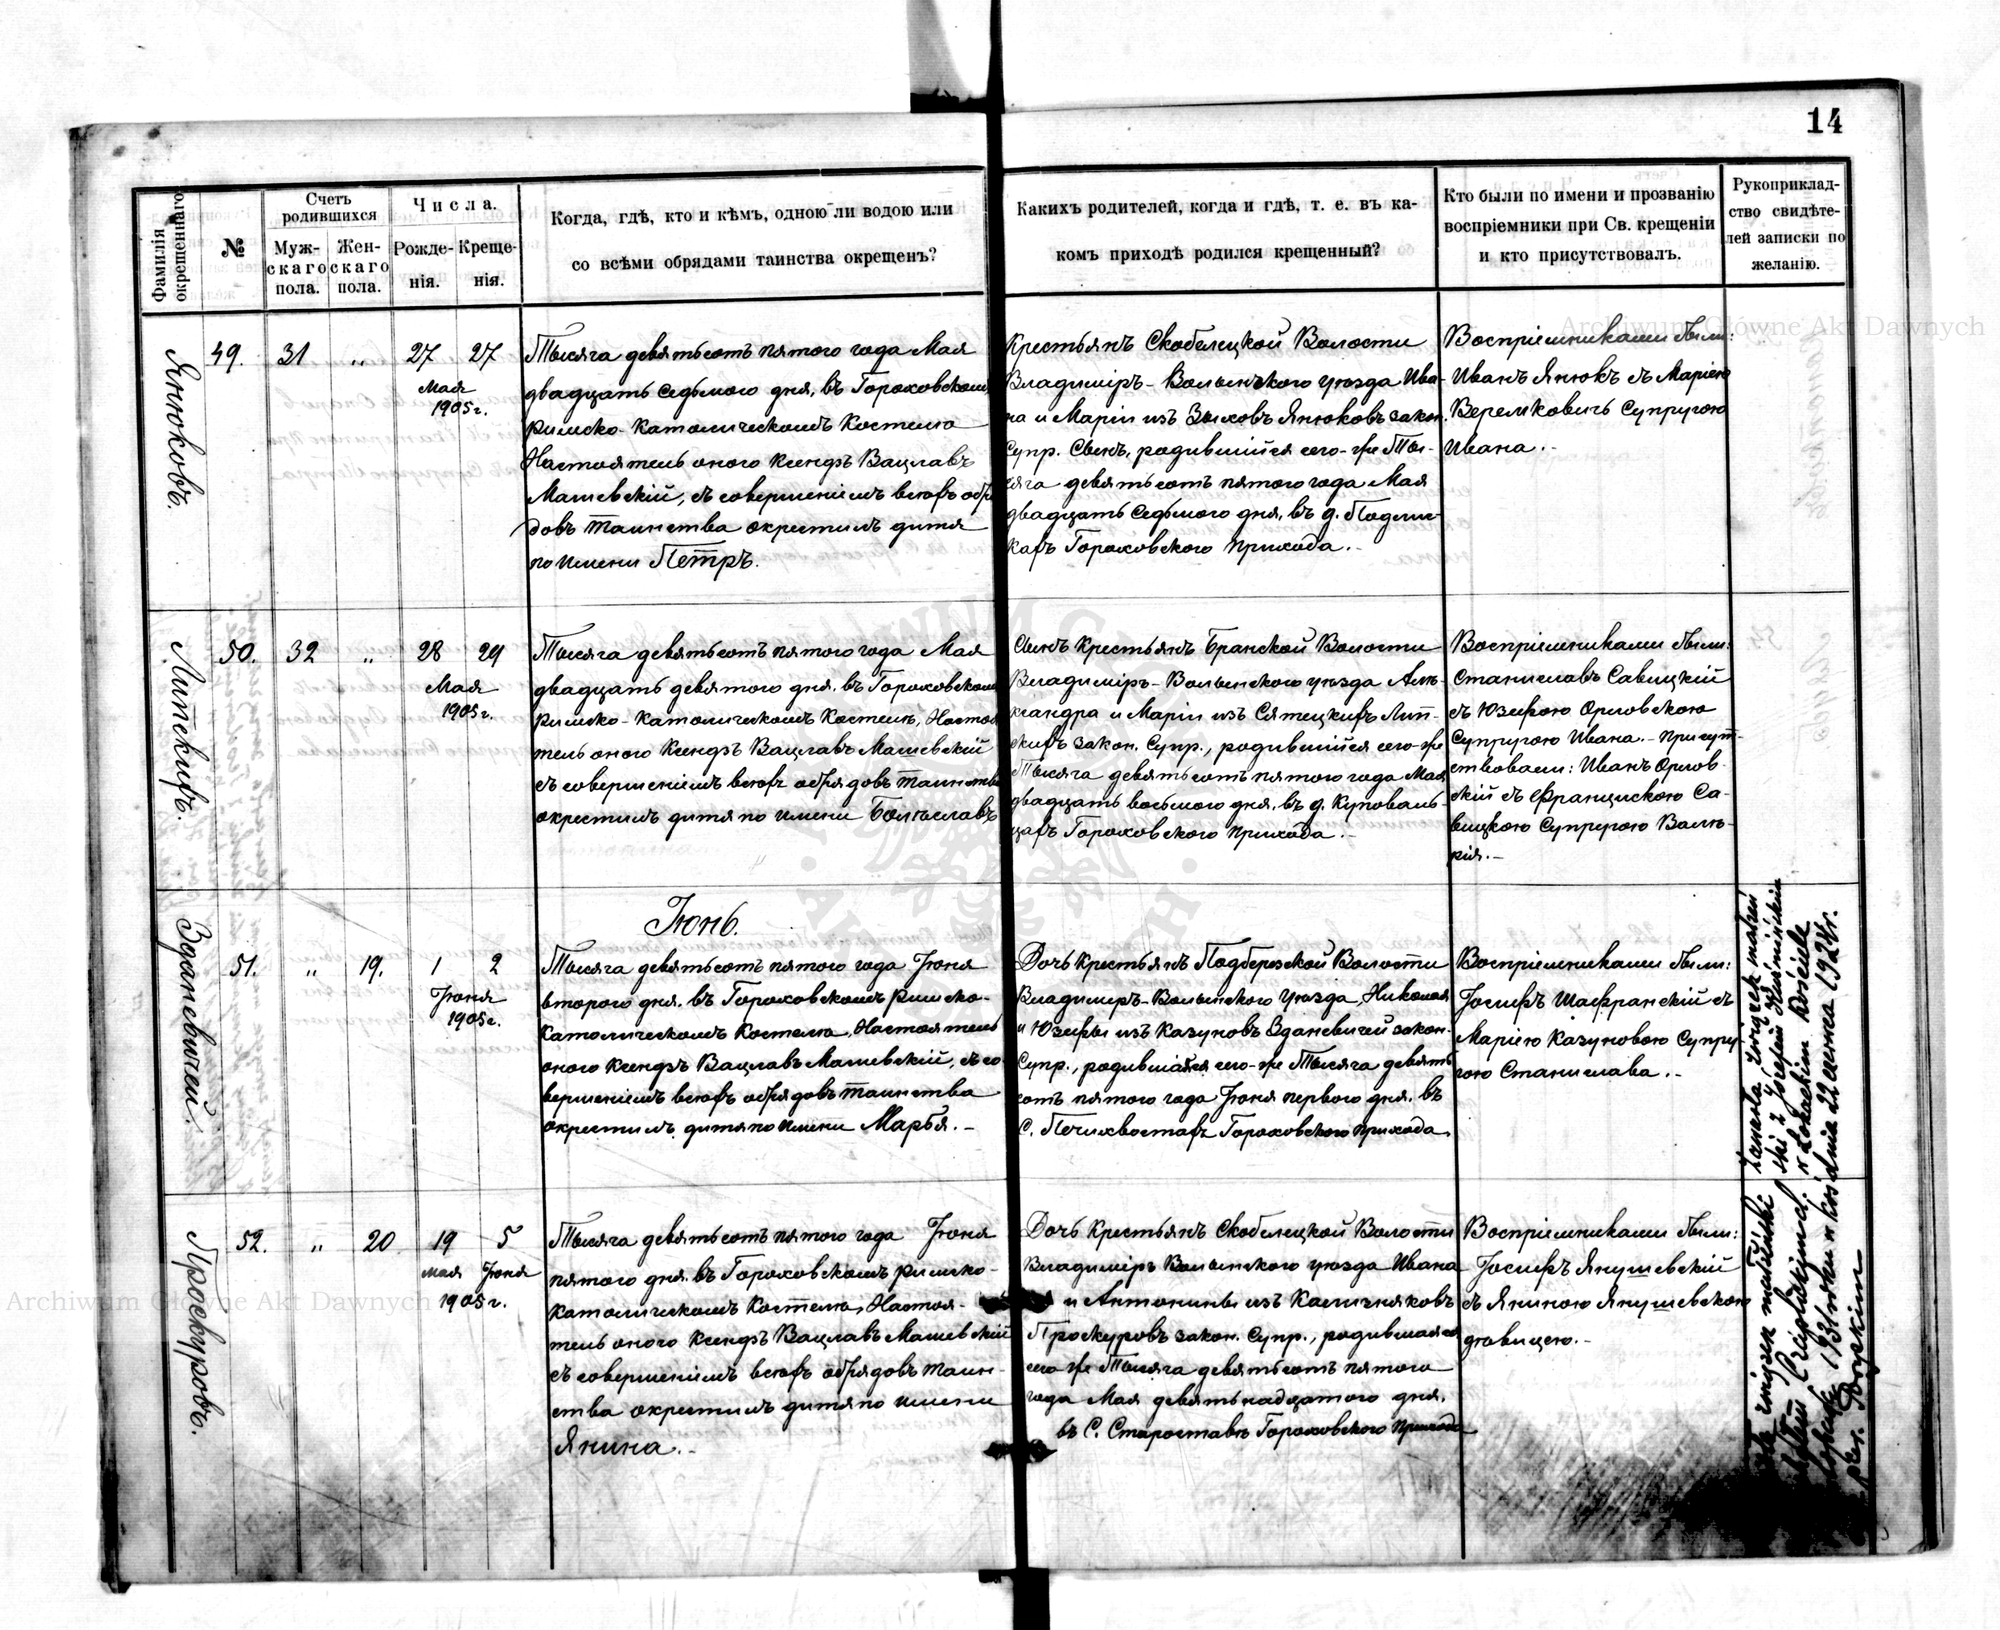 14
Фамилія окрещеннаго.
№
Счетъ родившихся
Муж-
скаго
пола.
Жен-
скаго
пола.
Числа.
Рожде-
нія.
Креще-
нія.
Когда, гдѣ, кто и кѣмъ, одною ли водою или
со всѣми обрядами таинства окрещенъ?
Какихъ родителей, когда и гдѣ, т. е. въ ка-
комъ приходѣ родился крещенный?
Кто были по имени и прозванію
воспріемники при Св. крещеніи
и кто присутствовалъ.
Рукоприклад-
ство свидѣте-
лей записки по
желанію.
Янюковъ.
49. 31 „ 27 27
Мая
1905 г.
Тысяча девятьсотъ пятого года Мая
двадцать седьмого дня, въ Гороховскомъ
римско-католическомъ Костелѣ
Настоятель оного Ксендзъ Вацлавъ
Машевскій, съ совершеніемъ всѣхъ обря
довъ таинства окрестилъ дитя
по имени Петръ.
Крестьянъ Скобелецкой Волости
Владиміръ-Волынского уѣзда Ива-
на и Маріи изъ Зыховъ Янюковъ закон.
Супр. Сынъ, родившійся сего-же Ты-
сяча девятьсотъ пятого года Мая
двадцать седьмого дня, въ д. Подлис-
кахъ Гороховского прихода.-
Воспріемниками были:
Иванъ Янюкъ съ Маріею
Веремковичъ супругою
Ивана.-
Липскихъ.
50. 32 „ 28 29
Мая
1905 г.
Тысяча девятьсотъ пятого года Мая
двадцать девятого дня, въ Гороховскомъ
римско-католическомъ Костелѣ, Настоя
тель оного Ксендзъ Вацлавъ Машевскій
съ совершеніемъ всѣхъ обрядовъ таинства
окрестилъ дитя по имени Болеславъ
Сынъ крестьянъ Бранской Волости
Владиміръ-Волынского уѣзда Алек-
сандра и Маріи изъ Сятецкихъ Лип-
скихъ закон. Супр., родившійся сего-же
Тысяча девятьсотъ пятого года Мая
двадцать восьмого дня, въ д. Куповаль-
цахъ Гороховского прихода.-
Воспріемниками были:
Станиславъ Савицкій
съ Юзефою Орловскою
супругою Ивана.- Присут-
ствовали: Иванъ Орлов-
скій съ Францискою Са-
вицкою Супругою Вале-
рія.-
Здапевичей.
Іюнь.
51. „ 19. 1 2
Іюня
1905 г.
Тысяча девятьсотъ пятого года Іюня
второго дня, въ Гороховскомъ римско-
католическомъ Костелѣ, Настоятель
оного Ксендзъ Вацлавъ Машевскій, съ со
вершеніемъ всѣхъ обрядовъ таинства
окрестилъ дитя по имени Марья.-
Дочь крестьянъ Подберезской Волости
Владиміръ-Волынского уѣзда, Николая
и Юзефы изъ Казуновъ Здапевичей закон.
Супр., родившаяся сего-же Тысяча девять
сотъ пятого года Іюня первого дня, въ
С. Печихвостахъ Гороховского прихода.
Воспріемниками были:
Іосифъ Шафранскій съ
Маріею Казуновою супру-
гою Станислава.-
Проскуровъ.
52. „ 20. 19 5
Мая Іюня
1905 г.
Тысяча девятьсотъ пятого года Іюня
пятого дня, въ Гороховскомъ римско-
католическомъ Костелѣ, Настоя-
тель оного Ксендзъ Вацлавъ Машевскій
съ совершеніемъ всѣхъ обрядовъ таин-
ства окрестилъ дитя по имени
Янина.-
Дочь крестьянъ Скобелецкой Волости
Владиміръ Волынского уѣзда Ивана
и Антонины изъ Каспчняковъ
Проскуровъ закон. Супр., родившаяся
сего же Тысяча девятьсотъ пятого
года Мая девятьнадцатого дня,
въ С. Староставѣ Гороховского прихода
Воспріемниками были:
Іосифъ Янушевскій
съ Яниною Янушевскою
дѣвицею.-
związek małżeński zawarła, związek małżeń
ski z Józefem
w Łokackim kościele
dnia 22 czerwca 1924 r.
Archiwum Główne Akt Dawnych
Archiwum Główne Akt Dawnych